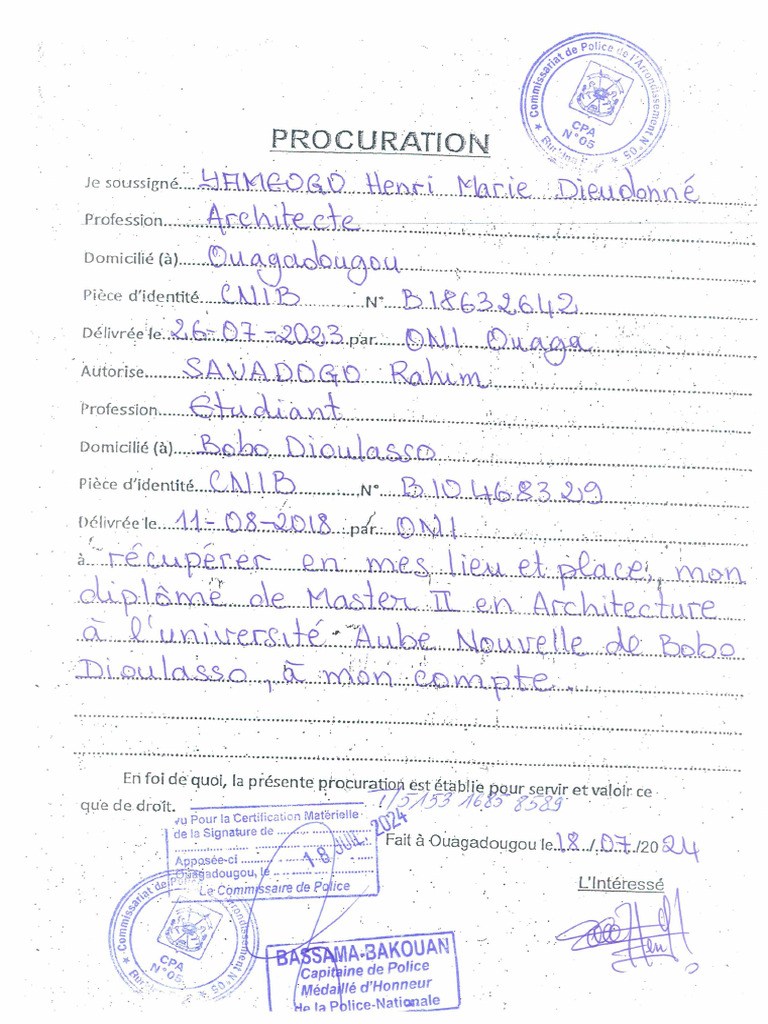 Commissariat de Police de l'Arrondissement N°05
CPA
N°05
PROCURATION
Je soussigné....YAMEOGO Henri Marie Dieudonné
Profession....Architecte
Domicilié (à)....Ouagadougou
Pièce d'identité CNIB N° B18632642
Délivrée le 26-07-2023 par ONI Ouaga
Autorise....SAVADOGO Rahim
Profession....Etudiant
Domicilié (à)....Bobo Dioulasso
Pièce d'identité CNIB N° B10468329
Délivrée le 11-08-2018 par ONI
à récupérer en mes lieu et place, mon
diplôme de Master II en Architecture
à l'université Aube Nouvelle de Bobo
Dioulasso, à mon compte.
En foi de quoi, la présente procuration est établie pour servir et valoir ce
que de droit.
vu Pour la Certification Matérielle
de la Signature de
Apposée-ci
Ouagadougou, le
18 JUIL 2024
Le Commissaire de Police
Fait à Ouagadougou le 18/07/2024
L'Intéressé
Commissariat de Police de l'Arrondissement N°05
CPA
N°05
BASSAMA-BAKOUAN
Capitaine de Police
Médaillé d'Honneur
de la Police-Nationale